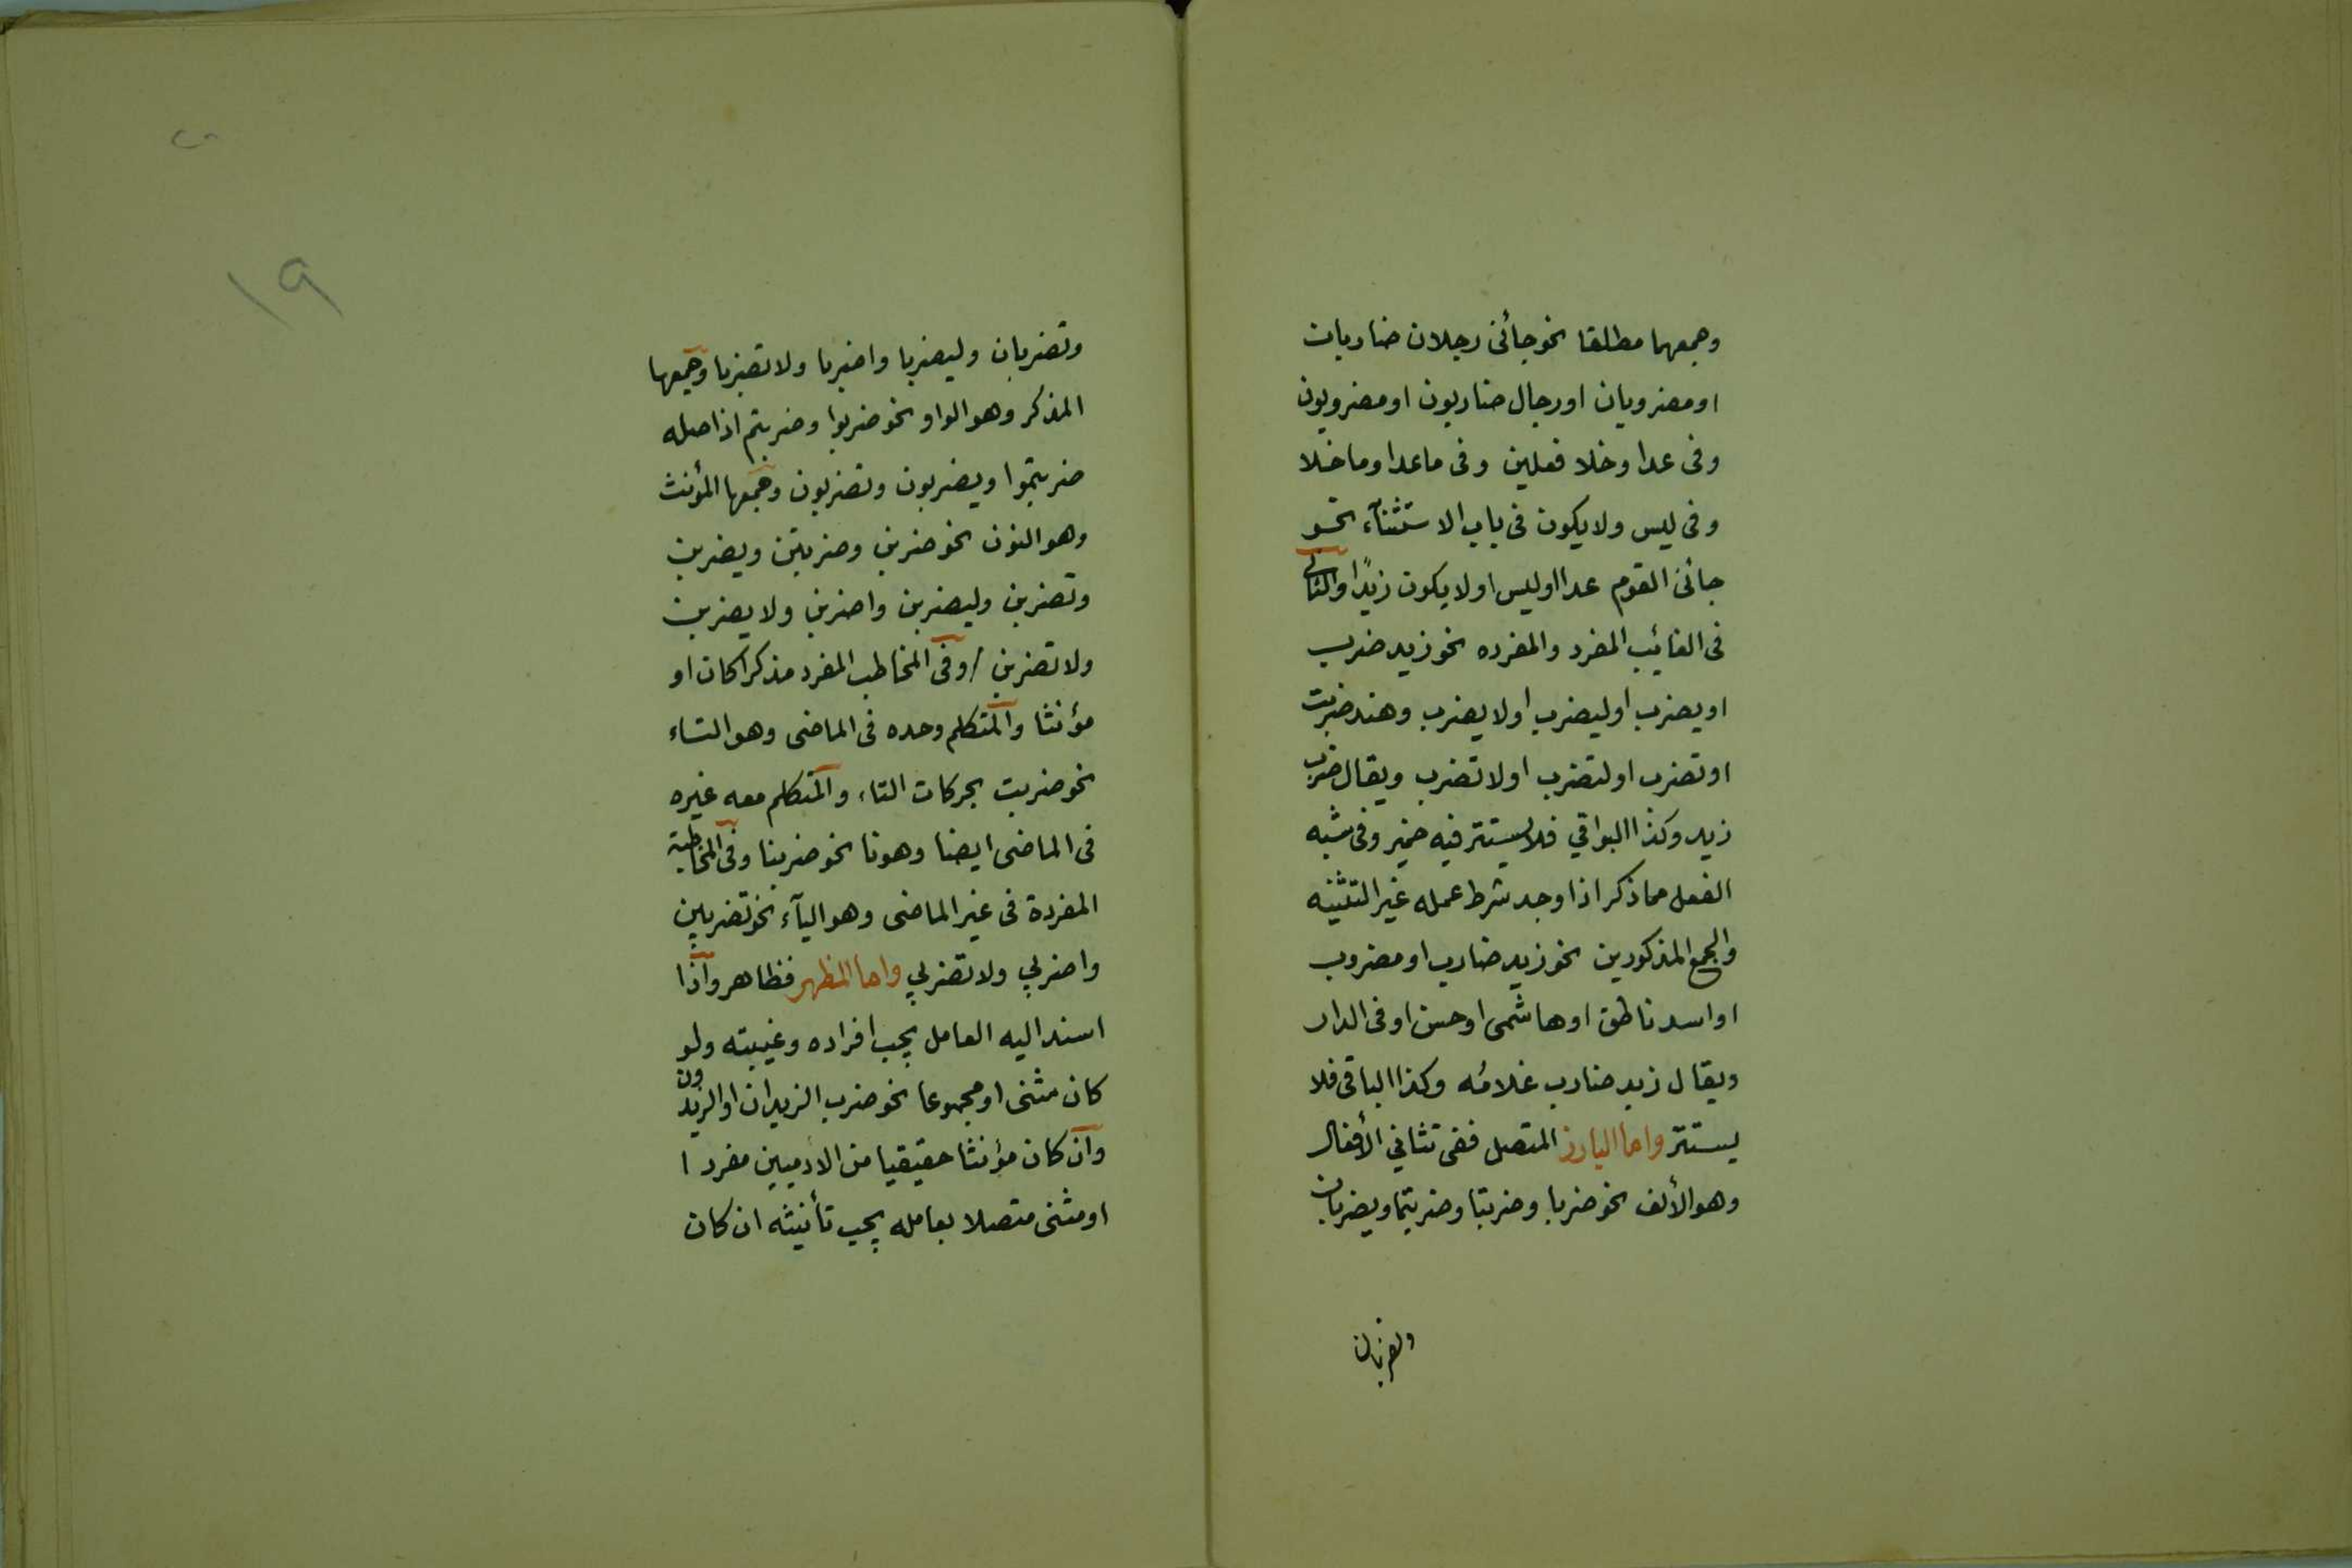 وجمعهما مطلقا نحو جائنى رجلان ضاربان
او مضروبان او رجال ضاربون او مضروبون
وفى عدا وخلا فعلين وفى ماعدا وماخلا
وفى ليس ولا يكون فى باب الاستثنآء نحو
جائنى القوم عدا او ليس او لا يكون زيدًا والثانى
فى الغائب المفرد والمفرده نحو زيد ضرب
او يضرب او ليضرب او لا يضرب وهند ضربت
او تضرب او لتضرب او لا تضرب ويقال ضرب
زيد وكذا البواقي فلا يستتر فيه ضمير وفى شبه
الفعل مما ذكر اذا وجد شرط عمله غير التثنيه
والجمع المذكورين نحو زيد ضارب او مضروب
او اسد ناطق او هاشمى او حسن او فى الدار
ويقال زيد ضارب غلامُه وكذا الباقى فلا
يستتر واما البارز المتصل ففى تثاني الأفعال
وهو الألف نحو ضربا وضربتا وضربتما ويضربان
وتضربان
١٩
وتضربان وليضربا واضربا ولا تضربا وجمعها
المذكر وهو الواو نحو ضربوا وضربتم اذ اصله
ضربتموا ويضربون وتضربون وجمعها المؤنث
وهو النون نحو ضربن وضربتن ويضربن
وتضربن وليضربن واضربن ولا يضربن
ولا تضربن / وفى المخاطب المفرد مذكرا كان او
مؤنثا والمتكلم وحده فى الماضى وهو التاء
نحو ضربت بحركات التاء والمتكلم معه غيره
فى الماضى ايضا وهو نا نحو ضربنا وفى المخاطبة
المفردة فى غير الماضى وهو اليآء نحو تضربين
واضربي ولا تضربي واما المظهر فظاهر واذا
اسند اليه العامل يجب افراده وغيبته ولو
كان مثنى او مجموعا نحو ضرب الزيدان او الزيدون
وان كان مؤنثا حقيقيا من الادميين مفردا
او مثنى متصلا بعامله يجب تأنيثه ان كان